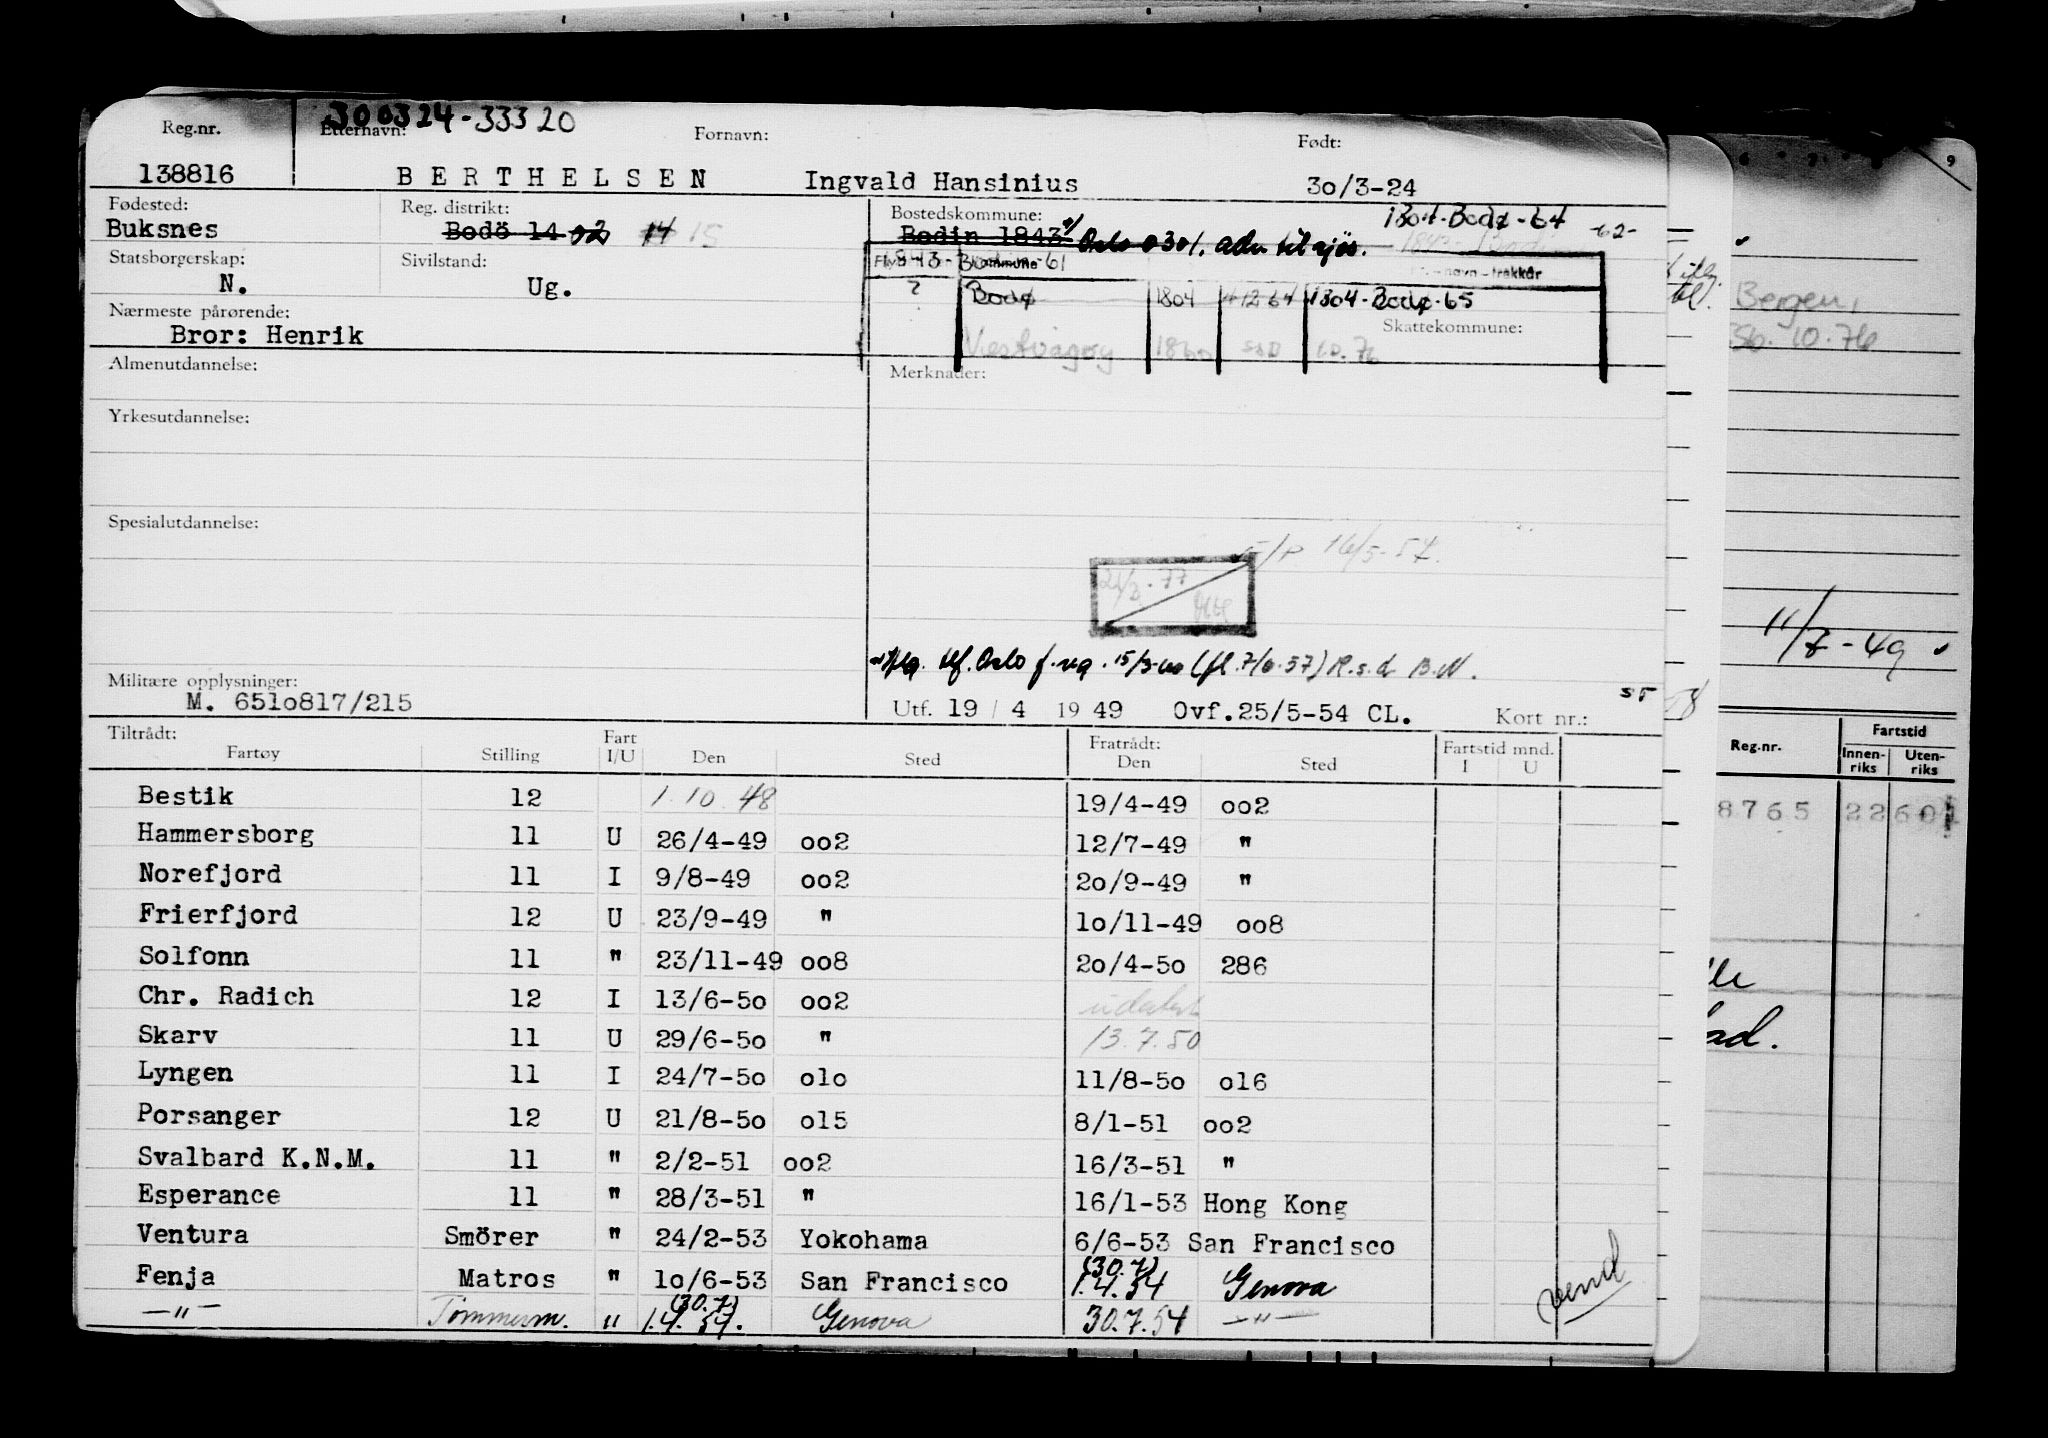 300324-33320
Reg.nr. Etternavn: Fornavn: Født:
138816 BERTHELSEN Ingvald Hansinius 30/3-24
Fødested: Reg. distrikt: Bostedskommune: 1804-Bodø-64 -62-
Buksnes Bodö 14 02 14 15 Bodin 1843 Oslo 0301. adr. til sjøs.
Statsborgerskap: Sivilstand: 1843-Bodin-61
N. Ug.
? Bodø 1804 4 12 64 1804-Bodø-65
Nærmeste pårørende: Skattekommune:
Bror: Henrik Vestvågøy 1860 10.76
Almenutdannelse: Merknader:
Yrkesutdannelse:
Spesialutdannelse:
F/P 16/5-54.
tlf. Oslo 15/3-60 (fl. 7/6-57) R.s.d B.N.
Militære opplysninger:
M. 6510817/215
Utf. 19 / 4 19 49 Ovf.25/5-54 CL. Kort nr.:
Tiltrådt: Fratrådt:
Fartøy Stilling Fart I/U Den Sted Den Sted Fartstid mnd. I U
Bestik 12 1.10.48 19/4-49 002
Hammersborg 11 U 26/4-49 002 12/7-49 "
Norefjord 11 I 9/8-49 002 20/9-49 "
Frierfjord 12 U 23/9-49 " 10/11-49 008
Solfonn 11 " 23/11-49 008 20/4-50 286
Chr. Radich 12 I 13/6-50 002
Skarv 11 U 29/6-50 " 13.7.50
Lyngen 11 I 24/7-50 010 11/8-50 016
Porsanger 12 U 21/8-50 015 8/1-51 002
Svalbard K.N.M. 11 " 2/2-51 002 16/3-51 "
Esperance 11 " 28/3-51 " 16/1-53 Hong Kong
Ventura Smörer " 24/2-53 Yokohama 6/6-53 San Francisco
Fenja Matros " 10/6-53 San Francisco (30.7) 1.4.54 Genova
—"— Tømmerm. " (30.7) 1.4.54. Genova 30.7.54 —"—
vend
9
Bergen,
10.76
11/7-49
Reg.nr. Fartstid
Innenriks Utenriks
8765 22